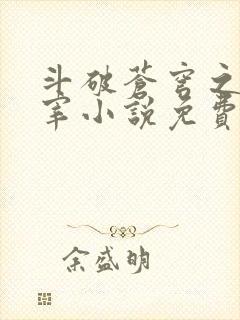 斗破蒼穹之
宰小說免費
余盛明